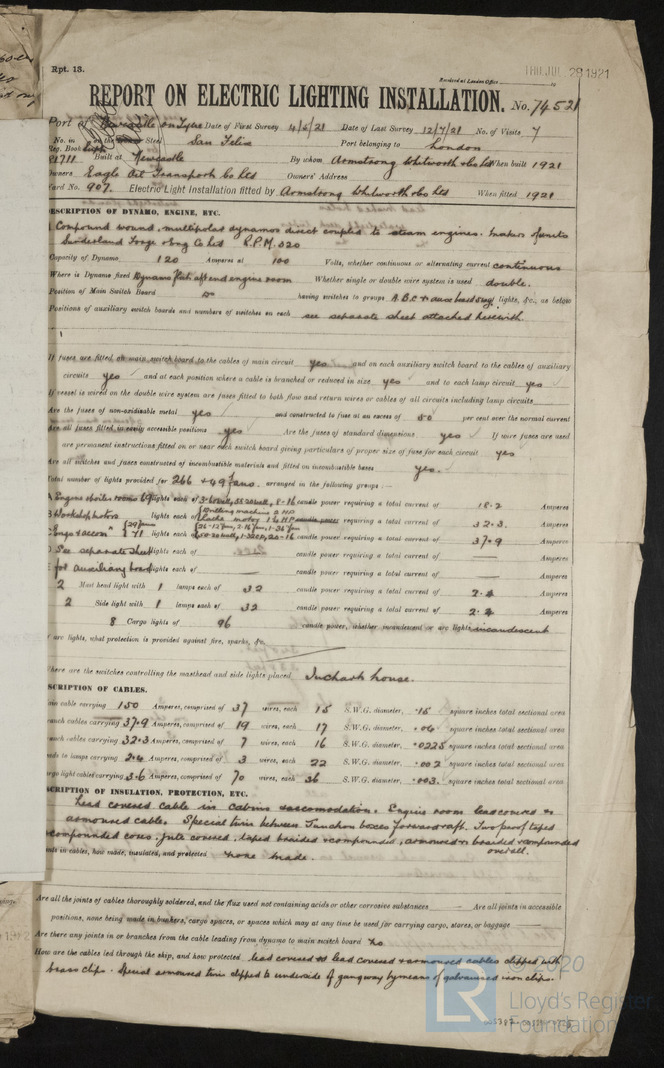 Rpt. 13.
Received at London Office
THU. JUL 28 1921
REPORT ON ELECTRIC LIGHTING INSTALLATION. No. 74521
Port of Newcastle on Tyne Date of First Survey 4/5/21 Date of Last Survey 12/7/21 No. of Visits 7
No. in on the Steel San Felix Port belonging to London
Reg. Book
1711 Built at Newcastle By whom Armstrong Whitworth & Co Ltd When built 1921
Owners Eagle Oil Transport Co Ltd Owners' Address
Card No. 907. Electric Light Installation fitted by Armstrong Whitworth & Co Ltd When fitted 1921
DESCRIPTION OF DYNAMO, ENGINE, ETC.
Compound wound, multipolar dynamos direct coupled to steam engines. Makers of units
Sunderland Forge & Eng Co Ltd R.P.M. 320
Capacity of Dynamo 120 Amperes at 100 Volts, whether continuous or alternating current continuous
Where is Dynamo fixed Dynamo flat aft end engine room Whether single or double wire system is used double.
Position of Main Switch Board Do having switches to groups A.B.C & aux board lights, &c., as below
Positions of auxiliary switch boards and numbers of switches on each see separate sheet attached herewith
If fuses are fitted on main switch board to the cables of main circuit yes and on each auxiliary switch board to the cables of auxiliary
circuits yes and at each position where a cable is branched or reduced in size yes and to each lamp circuit yes
If vessel is wired on the double wire system are fuses fitted to both flow and return wires or cables of all circuits including lamp circuits
Are the fuses of non-oxidizable metal yes and constructed to fuse at an excess of 50 per cent over the normal current
Are all fuses fitted in easily accessible positions yes Are the fuses of standard dimensions yes If wire fuses are used
are permanent instructions fitted on or near each switch board giving particulars of proper size of fuse for each circuit yes
Are all switches and fuses constructed of incombustible materials and fitted on incombustible bases yes.
Total number of lights provided for 266 + 49 fans. arranged in the following groups :—
A Engine & boiler rooms 69 lights each of 8-16 candle power requiring a total current of 18.2 Amperes
B Workshop motors lights each of Drilling machine 2 HP Lathe motor candle power requiring a total current of 32.3. Amperes
29 fans 71 lights each of 20-16 candle power requiring a total current of 37.9 Amperes
D See separate sheet lights each of candle power requiring a total current of — Amperes
E for auxiliary board lights each of — candle power requiring a total current of — Amperes
2 Mast head light with 1 lamps each of 32 candle power requiring a total current of 2.4 Amperes
2 Side light with 1 lamps each of 32 candle power requiring a total current of 2.4 Amperes
8 Cargo lights of 96 candle power, whether incandescent or arc lights incandescent
If arc lights, what protection is provided against fire, sparks, &c.
Where are the switches controlling the masthead and side lights placed In chart house.
DESCRIPTION OF CABLES.
Main cable carrying 150 Amperes, comprised of 37 wires, each 15 S.W.G. diameter, .15 square inches total sectional area
Branch cables carrying 37.9 Amperes, comprised of 19 wires, each 17 S.W.G. diameter, .04 square inches total sectional area
Branch cables carrying 32.3 Amperes, comprised of 7 wires, each 16 S.W.G. diameter, .0225 square inches total sectional area
Leads to lamps carrying 2.4 Amperes, comprised of 3 wires, each 22 S.W.G. diameter, .002 square inches total sectional area
Cargo light cables carrying 3.6 Amperes, comprised of 70 wires, each 36 S.W.G. diameter, .003. square inches total sectional area
DESCRIPTION OF INSULATION, PROTECTION, ETC.
Lead covered cable in cabins & accomodation. Engine room lead covered &
armoured cables. Special twin between Junction boxes forward & aft. Two proof taped
& compounded cores. jute covered, taped braided & compounded, armoured & braided & compounded
overall.
Ends in cables, how made, insulated, and protected none made.
Are all the joints of cables thoroughly soldered, and the flux used not containing acids or other corrosive substances — Are all joints in accessible
positions, none being made in bunkers, cargo spaces, or spaces which may at any time be used for carrying cargo, stores, or baggage —
Are there any joints in or branches from the cable leading from dynamo to main switch board no
How are the cables led through the ship, and how protected lead covered & lead covered & armoured cables clipped with
brass clips. Special armoured twin clipped to underside of gangway by means of galvanised iron clips.
© 2020
Lloyd's Register
Foundation
LR